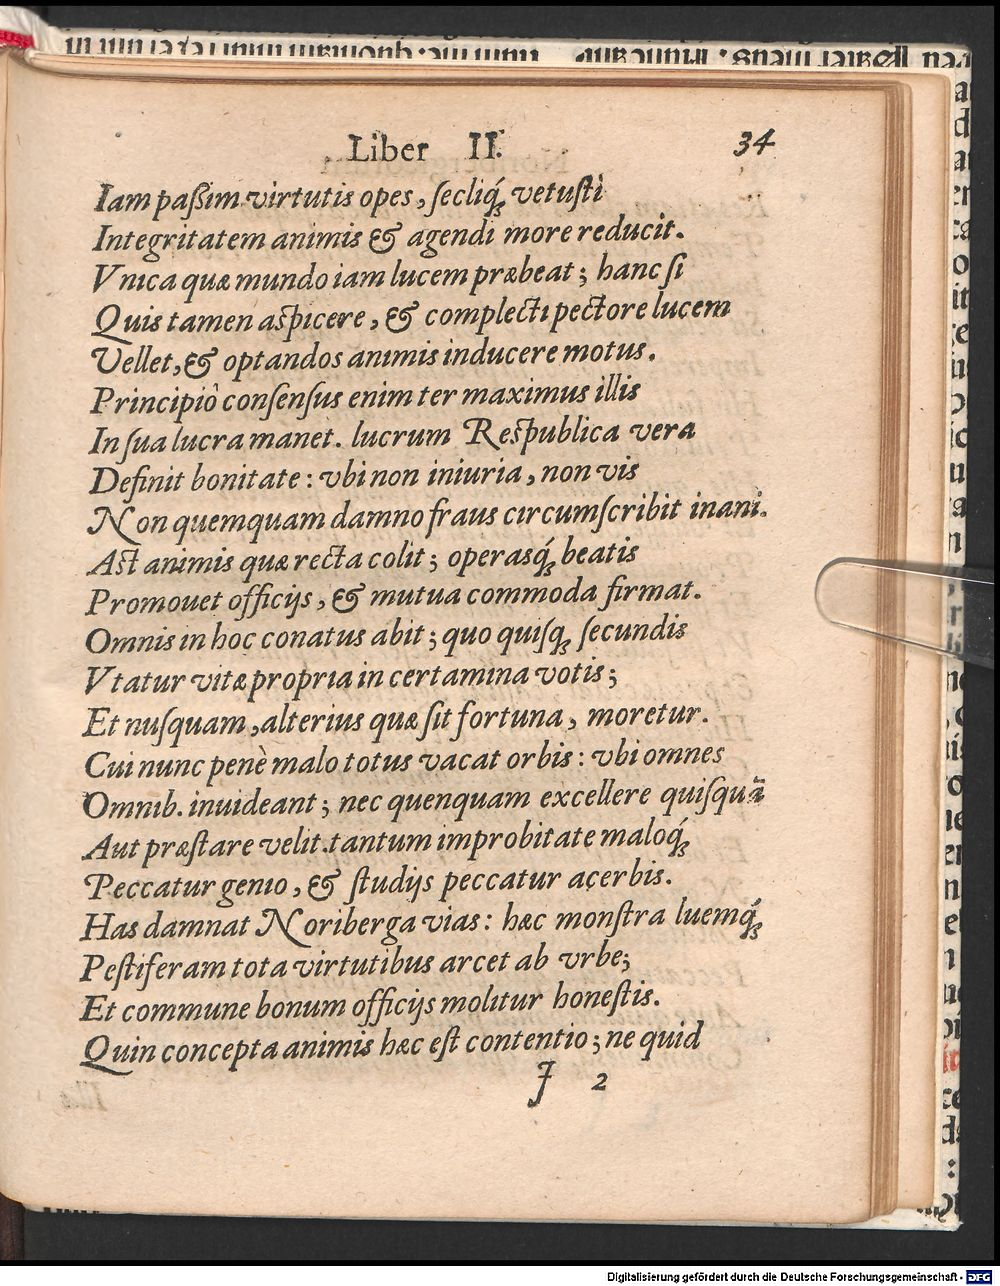 Liber II. 34
Iam paſsim virtutis opes, ſecliq́ꝫ vetuſti
Integritatem animis & agendi more reducit.
Vnica quæ mundo iam lucem præbeat; hanc ſi
Quis tamen aspicere, & complecti pectore lucem
Vellet, & optandos animis inducere motus.
Principiò conſenſus enim ter maximus illis
In ſua lucra manet. lucrum Respublica vera
Definit bonitate: vbi non iniuria, non vis
Non quemquam damno fraus circumſcribit inani.
Ast animis quæ recta colit; operasq́ꝫ beatis
Promouet officijs, & mutua commoda firmat.
Omnis in hoc conatus abit; quo quiſqꝫ ſecundis
Vtatur vitæ propria in certamina votis;
Et nuſquam, alterius quæ ſit fortuna, moretur.
Cui nunc penè malo totus vacat orbis: vbi omnes
Omnib. inuideant; nec quenquam excellere quiſquã
Aut præſtare velit. tantum improbitate maloq́ꝫ
Peccatur genio, & ſtudijs peccatur acerbis.
Has damnat Noriberga vias: hæc monſtra luemq́ꝫ
Peſtiferam tota virtutibus arcet ab vrbe;
Et commune bonum officijs molitur honeſtis.
Quin concepta animis hæc eſt contentio; ne quid
I 2
Digitalisierung gefördert durch die Deutsche Forschungsgemeinschaft - DFG